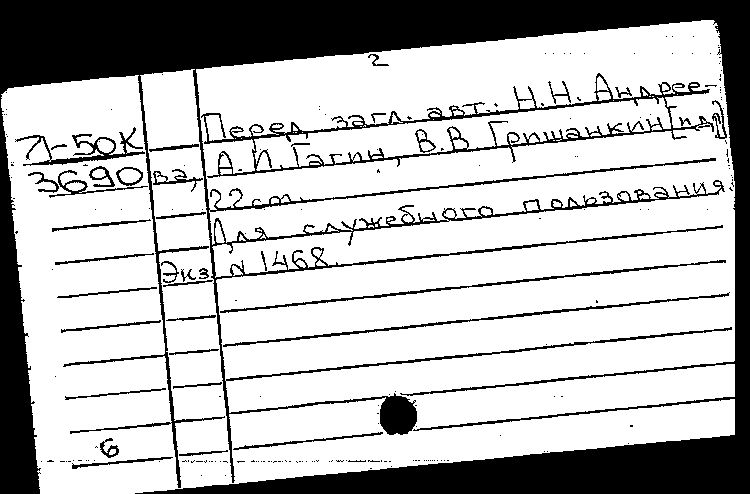 2
Перед загл. авт.: Н.Н. Андрее-
Л-50К
3690 ва, А.И. Гагин, В.В. Гришанкин [и др.]
22 см.
Для служебного пользования.
Экз. N 1468.
6